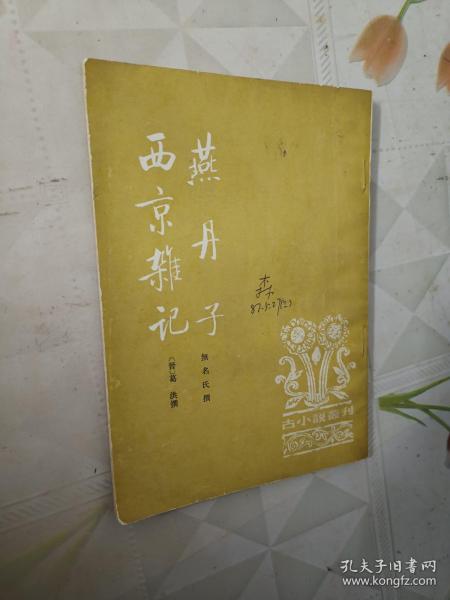 燕丹子
無名氏撰
西京雜记
〔晉〕葛洪撰
森
古小説叢刊
孔夫子旧书网
www.kongfz.com